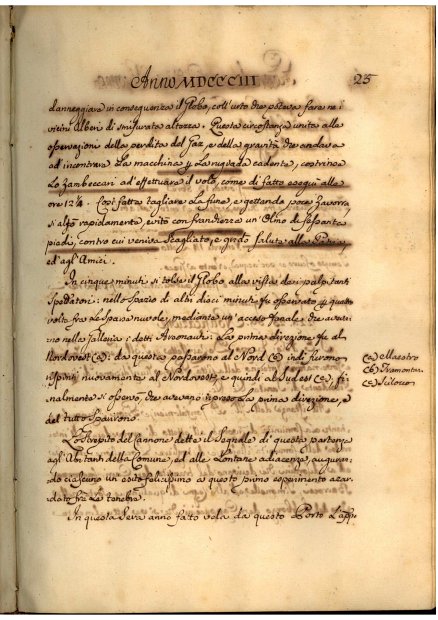 Anno MDCCCIII
25
danneggiare in conseguenza il Globo, coll'urto che poteva fare ne i
vicini Alberi di smisurata altezza. Questa circostanza unita alla
osservazione della perdita del Gaz, e della gravità che andava
ad incontrare La macchina y La rugiada cadente, costrinse
Lo Zambeccari ad effettuare il volo, come di fatto eseguì alle
ore 12¼. Così fatta tagliare La fune, e gettando poca Zavorra,
si alzò rapidamente, evitò con franchezza un'Olmo di sessanta
piedi, contro cui veniva scagliato, e gridò saluto alla Patria,
ed agl'Amici.
In cinque minuti si tolse il Globo alla vista dei palpitanti
Spettatori: nello spazio di altri dieci minuti fu osservato y quattro
volte fra Le spasse nuvole, mediante un' acceso fanale, che aveano
nella Galleria i detti Areonauti. La prima direzione fu al
Nordovest (a): da questa passarono al Nord (b) indi furono
respinti nuovamente al Nordovest, e quindi al Sudest (c), fi-
nalmente si osservò, che aveano ripreso La prima direzione, e
del tutto sparirono.
(a) Maestro
(b) Tramontana
(c) Scilocco
Lo strepito del Cannone dette il Segnale di questa partenza
agl'Abitanti della Comune, ed alle Lontane adiacenze, auguran-
do ciascuno un esito felicissimo a questo primo esperimento azar-
dato fra Le tenebre.
In questa Sera anno fatto vela da questo Porto L'appi